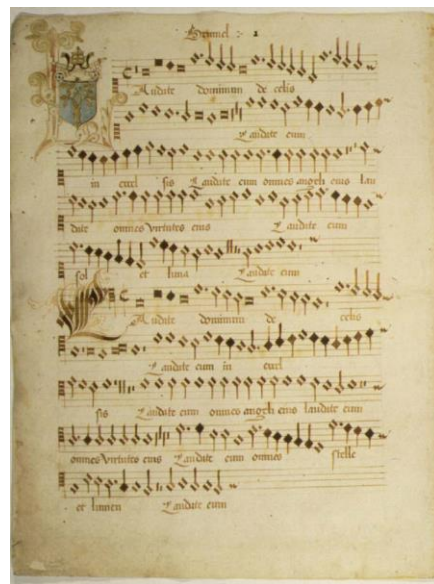 Brumel :- 1
Laudate dominum de celis
Laudate eum
in excel sis Laudate eum omnes angeli eius lau
date omnes Virtutes eius Laudate eum
sol et luna Laudate eum
Laudate dominum de celis
Laudate eum in excel
sis Laudate eum omnes angeli eius laudate eum
omnes Virtutes eius Laudate eum omnes stelle
et lumen Laudate eum